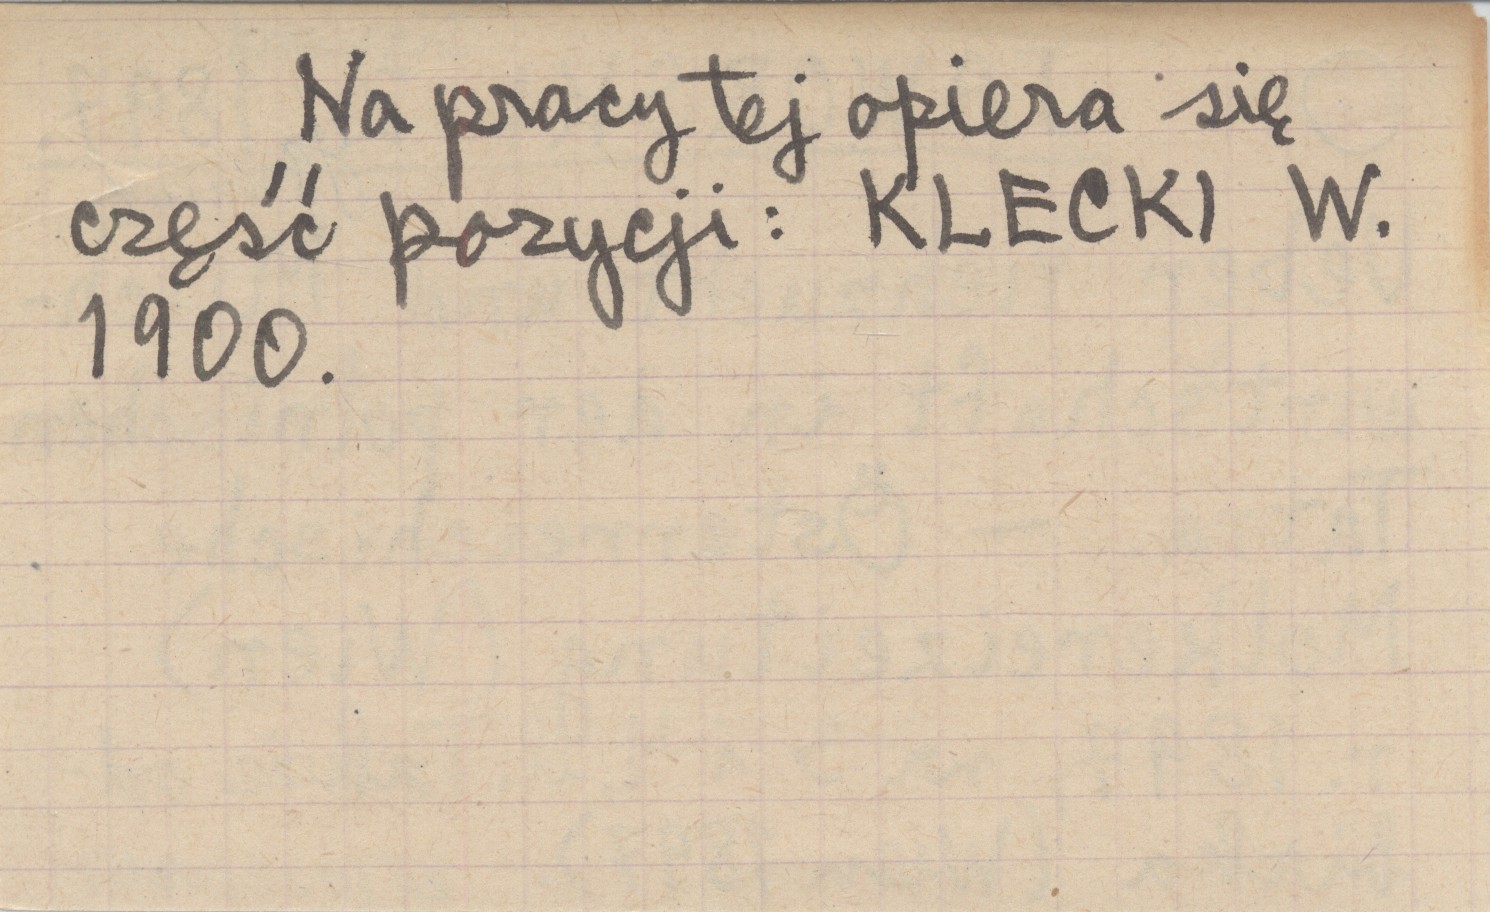 Na pracy tej opiera się
część pozycji: KLECKI W.
1900.